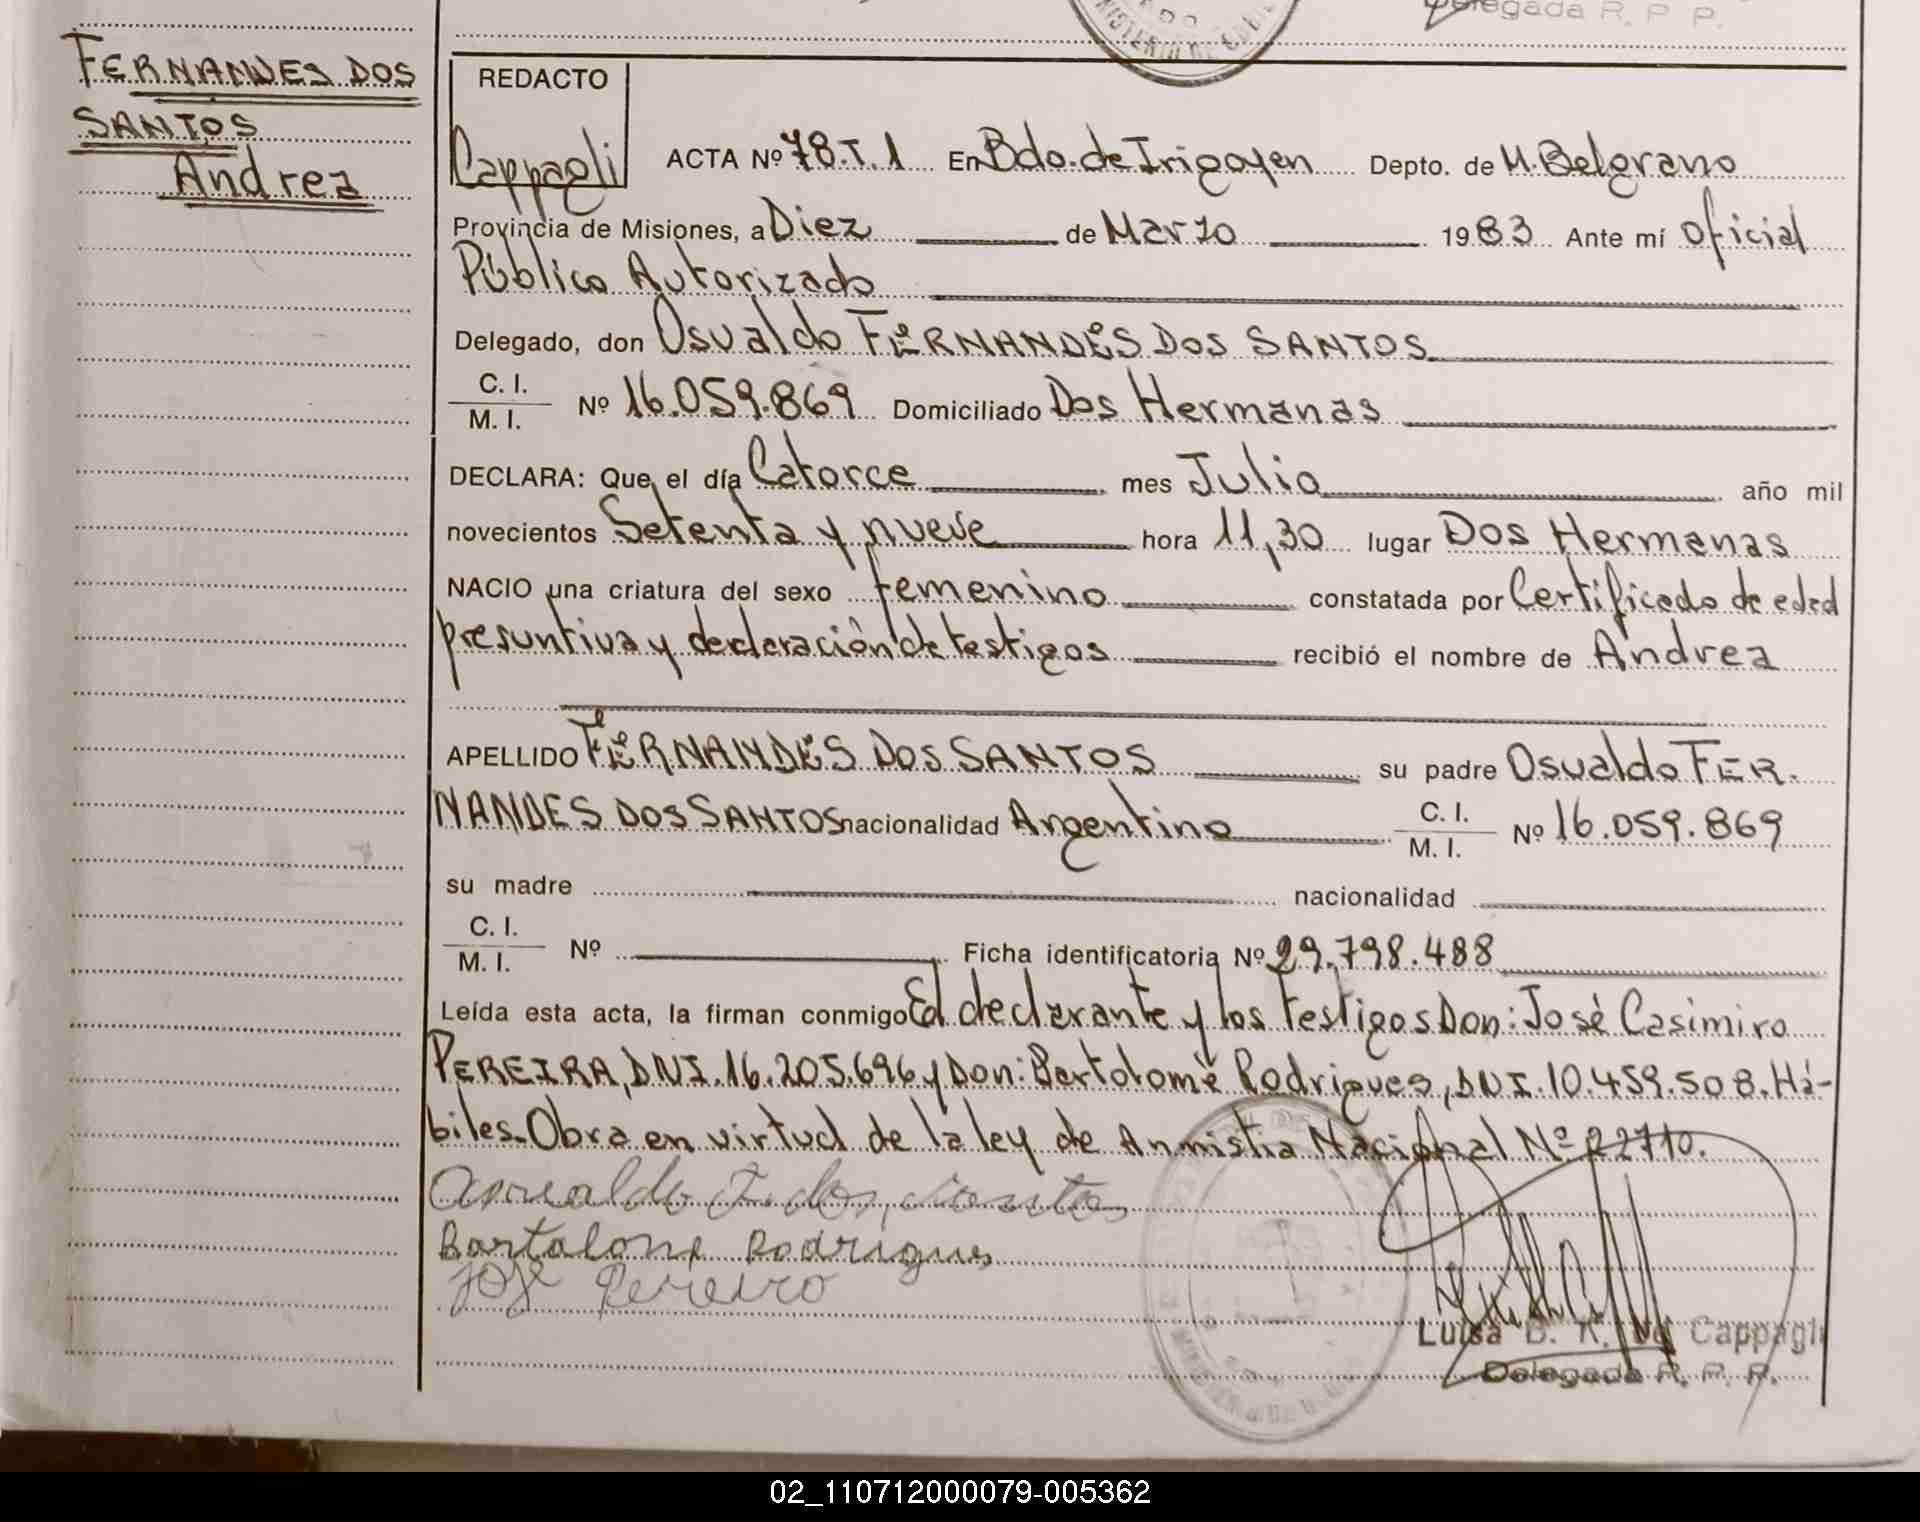 Delegada R. P. P.
FERNANDES DOS
SANTOS
Andrea
REDACTO
Cappagli
ACTA Nº 78.T.1 En Bdo. de Irigoyen Depto. de M. Belgrano
Provincia de Misiones, a Diez de Marzo 1983 Ante mí Oficial
Público Autorizado
Delegado, don Osvaldo FERNANDES DOS SANTOS
C. I.
M. I. Nº 16.059.869 Domiciliado Dos Hermanas
DECLARA: Que el día Catorce mes Julio año mil
novecientos Setenta y nueve hora 11,30 lugar Dos Hermanas
NACIO una criatura del sexo femenino constatada por Certificado de edad
presuntiva y declaración de testigos recibió el nombre de Andrea
APELLIDO FERNANDES DOS SANTOS su padre Osvaldo FER.
NANDES DOS SANTOS nacionalidad Argentino C. I. M. I. Nº 16.059.869
su madre nacionalidad
C. I.
M. I. Nº Ficha identificatoria Nº 29.798.488
Leída esta acta, la firman conmigo El declarante y los testigos Don: José Casimiro
PEREIRA, DNI. 16.205.696 y Don: Bartolomé Rodrigues, DNI. 10.459.508. Há-
biles. Obra en virtud de la ley de Anmistia Nacional Nº 22710.
Osvaldo F. dos Santos
Bartolome Rodrigues
Jose Pereiro
Luisa B. K. de Cappagli
Delegada R. P. P.
02_110712000079-005362